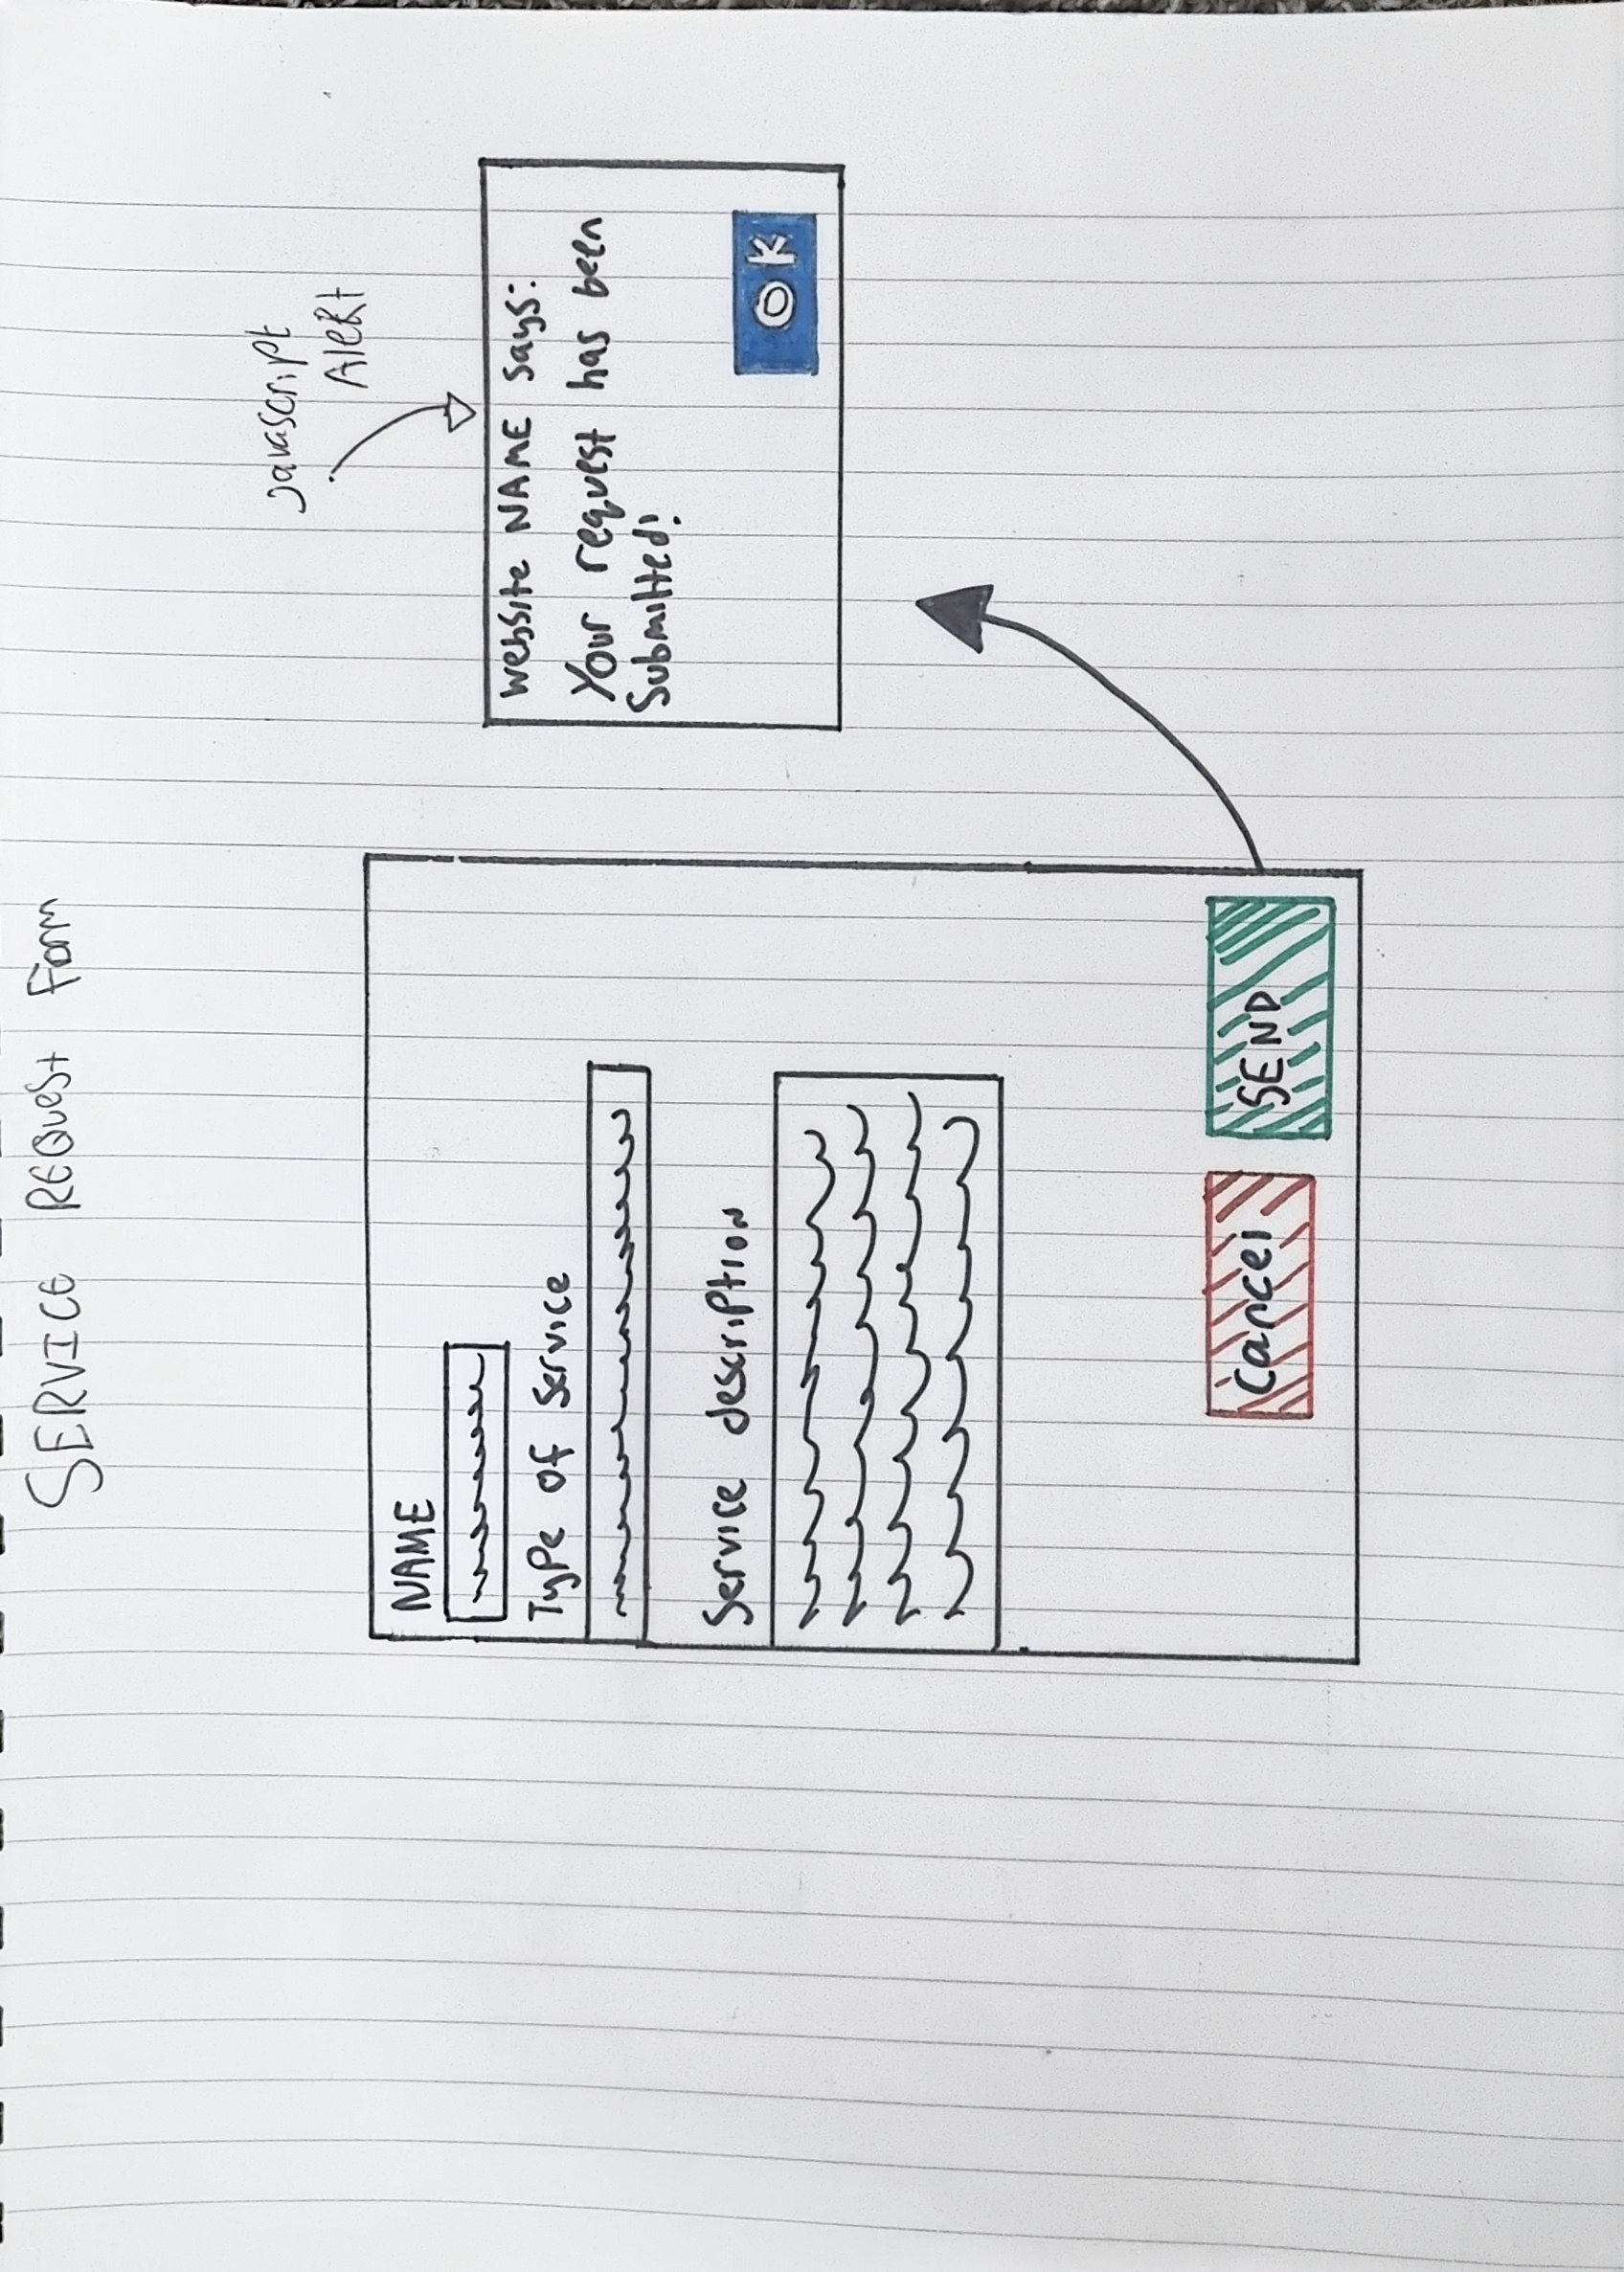 SERVICE REQUEST Form
NAME
Type of Service
Service description
Cancel
SEND
Javascript
AleRt
website NAME says:
Your request has been
Submitted!
OK